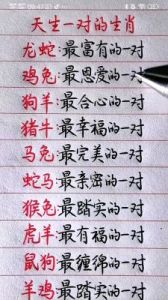 天生一对的生肖
龙蛇:最富有的一对
鸡兔:最恩爱的一对
狗羊:最合心的一对
猪牛:最幸福的一对
马兔:最完美的一对
蛇马:最亲密的一对
猴兔:最踏实的一对
虎羊:最有福的一对
鼠狗:最缠绵的一对
羊鸡:最踏实的一对